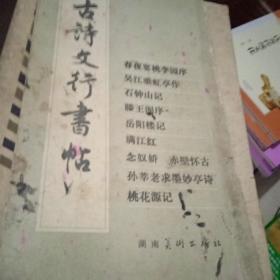 古詩文行書帖
春夜宴桃李园序
吴江垂虹亭作
石钟山记
滕王阁序
岳阳楼记
满江红
念奴娇　赤壁怀古
孙莘老求墨妙亭诗
桃花源记
湖南美术出版社